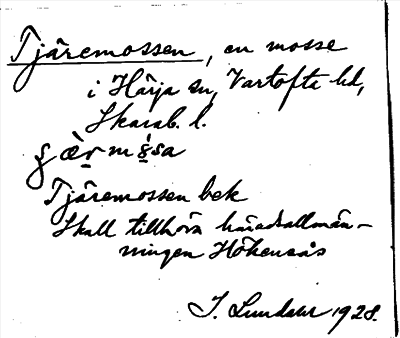 Tjäremossen, en mosse
i Härja sn, Vartofta hd,
Skarab. l.
Tjäremossen bek
Skall tillhöra häradsallmän-
ningen Hökensås
J. Lundahl 1928.